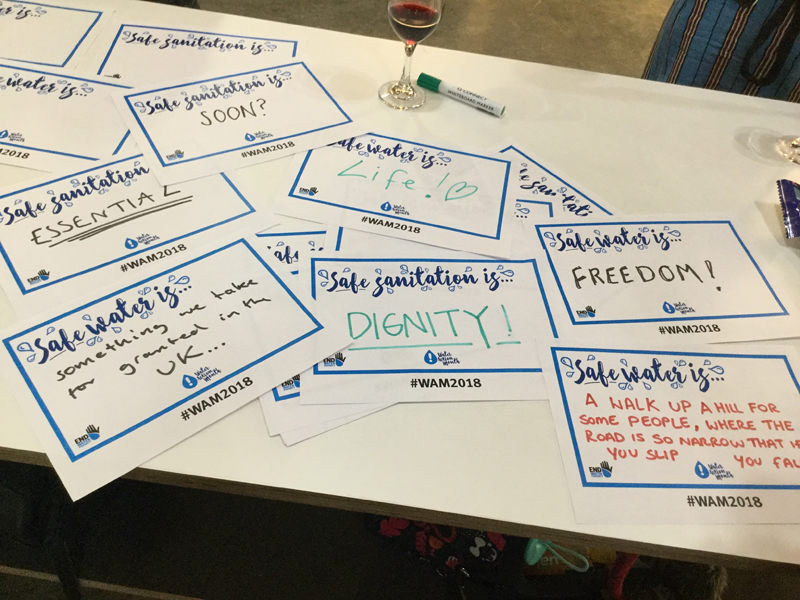 Safe sanitation is...
Safe sanitation is...
SOON?
#WAM2018
#WAM2018
Safe water is...
Life!
END
#WAM2018
Safe sanitation
ESSENTIAL
END
Water Action Month
#WAM2018
Safe water is...
FREEDOM!
#WAM2018
Safe sanitation is...
DIGNITY!
END
Water Action Month
#WAM2018
Safe water is...
something we take
for granted in the
UK...
END
Water Action Month
#WAM2018
Safe water is...
A WALK UP A HILL FOR
SOME PEOPLE, WHERE THE
ROAD IS SO NARROW THAT IF
YOU SLIP YOU FAL
END
Water Action Month
#WAM2018
WHITEBOARD MARKER